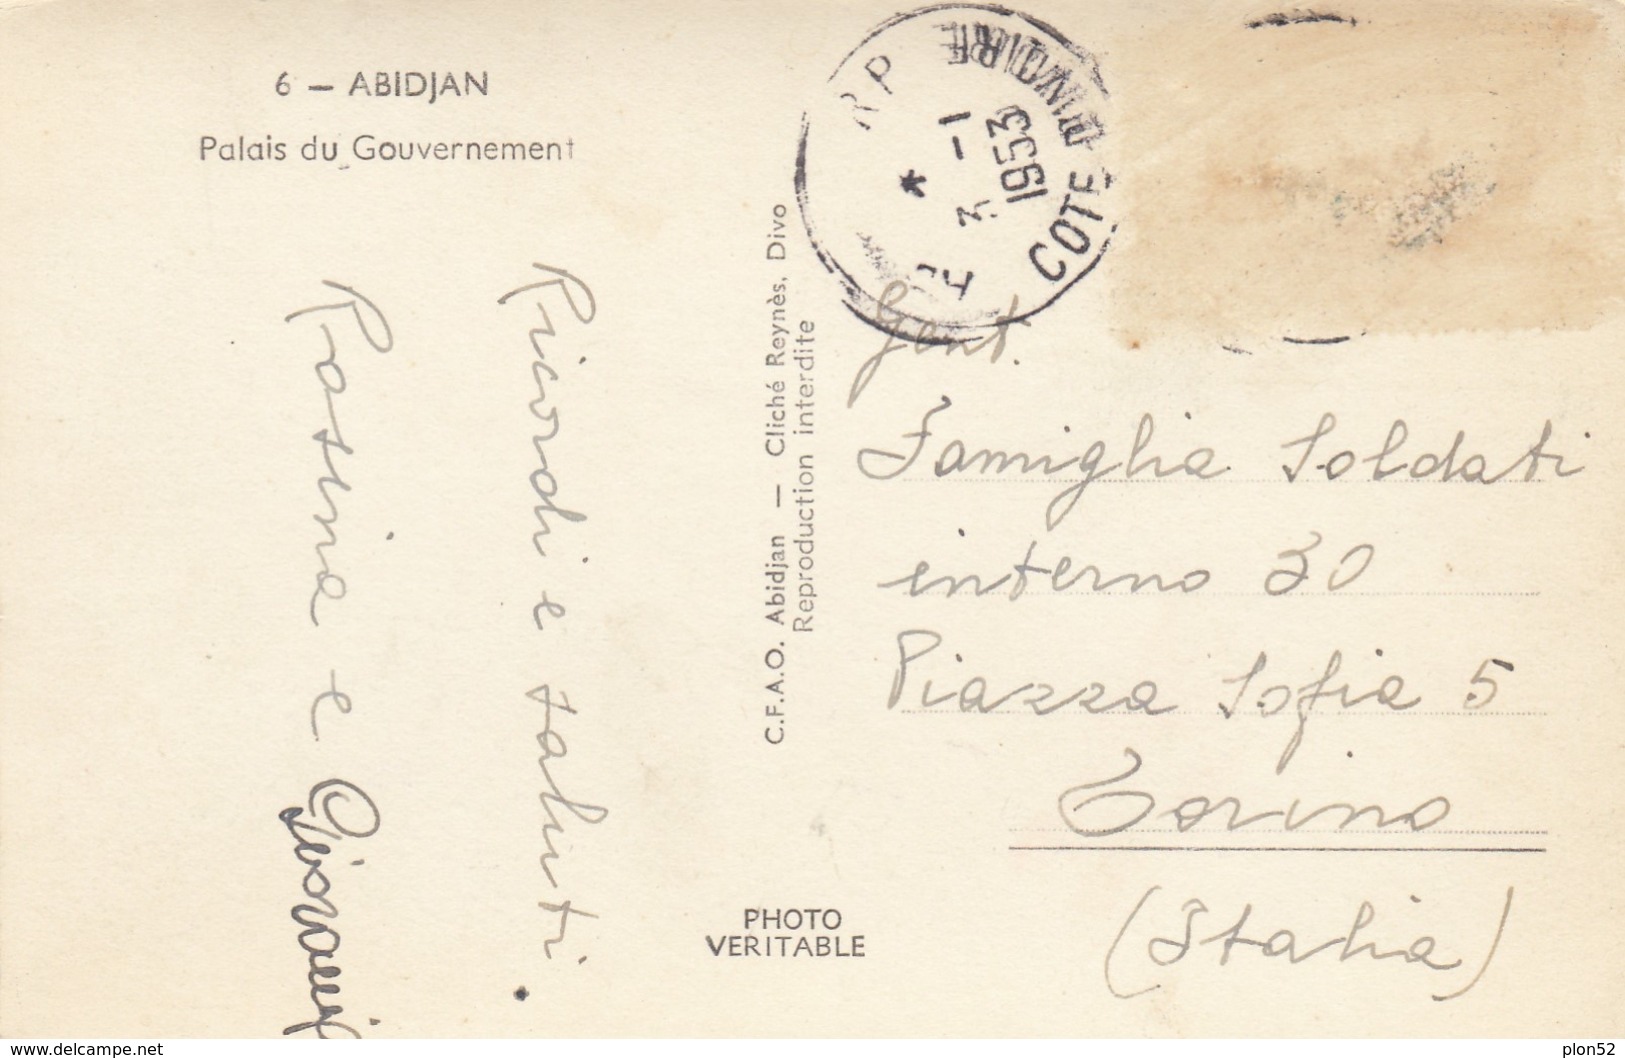 6 — ABIDJAN
Palais du Gouvernement
Ricordi e saluti.
Rosina e Giovanni
C.F.A.O. Abidjan — Cliché Reynès, Divo
Reproduction interdite
PHOTO
VERITABLE
RP
COTE D'IVOIRE
*
3 -1
1953
Gent.
Famiglia Soldati
interno 30
Piazza Sofia 5
Torino
(Italia)
www.delcampe.net
plon52